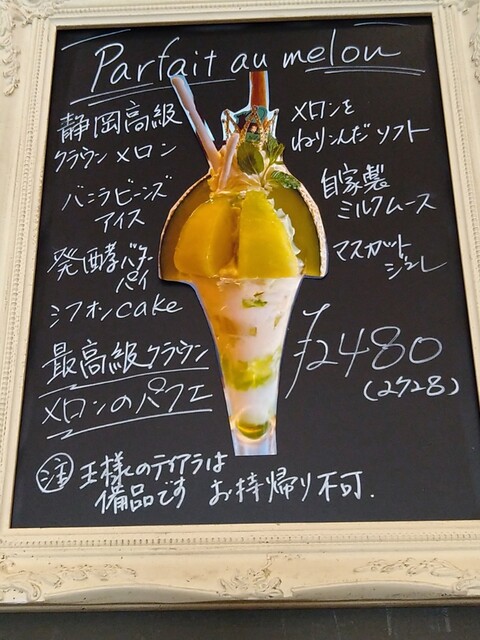 Parfait au melon
静岡高級
クラウンメロン
バニラビーンズ
アイス
発酵バター
パイ
シフォンcake
最高級クラウン
メロンのパフェ
メロンを
ねりこんだソフト
自家製
ミルクムース
マスカット
ジュレ
¥2480
(2728)
注 王様のティアラは
備品です お持帰り不可.